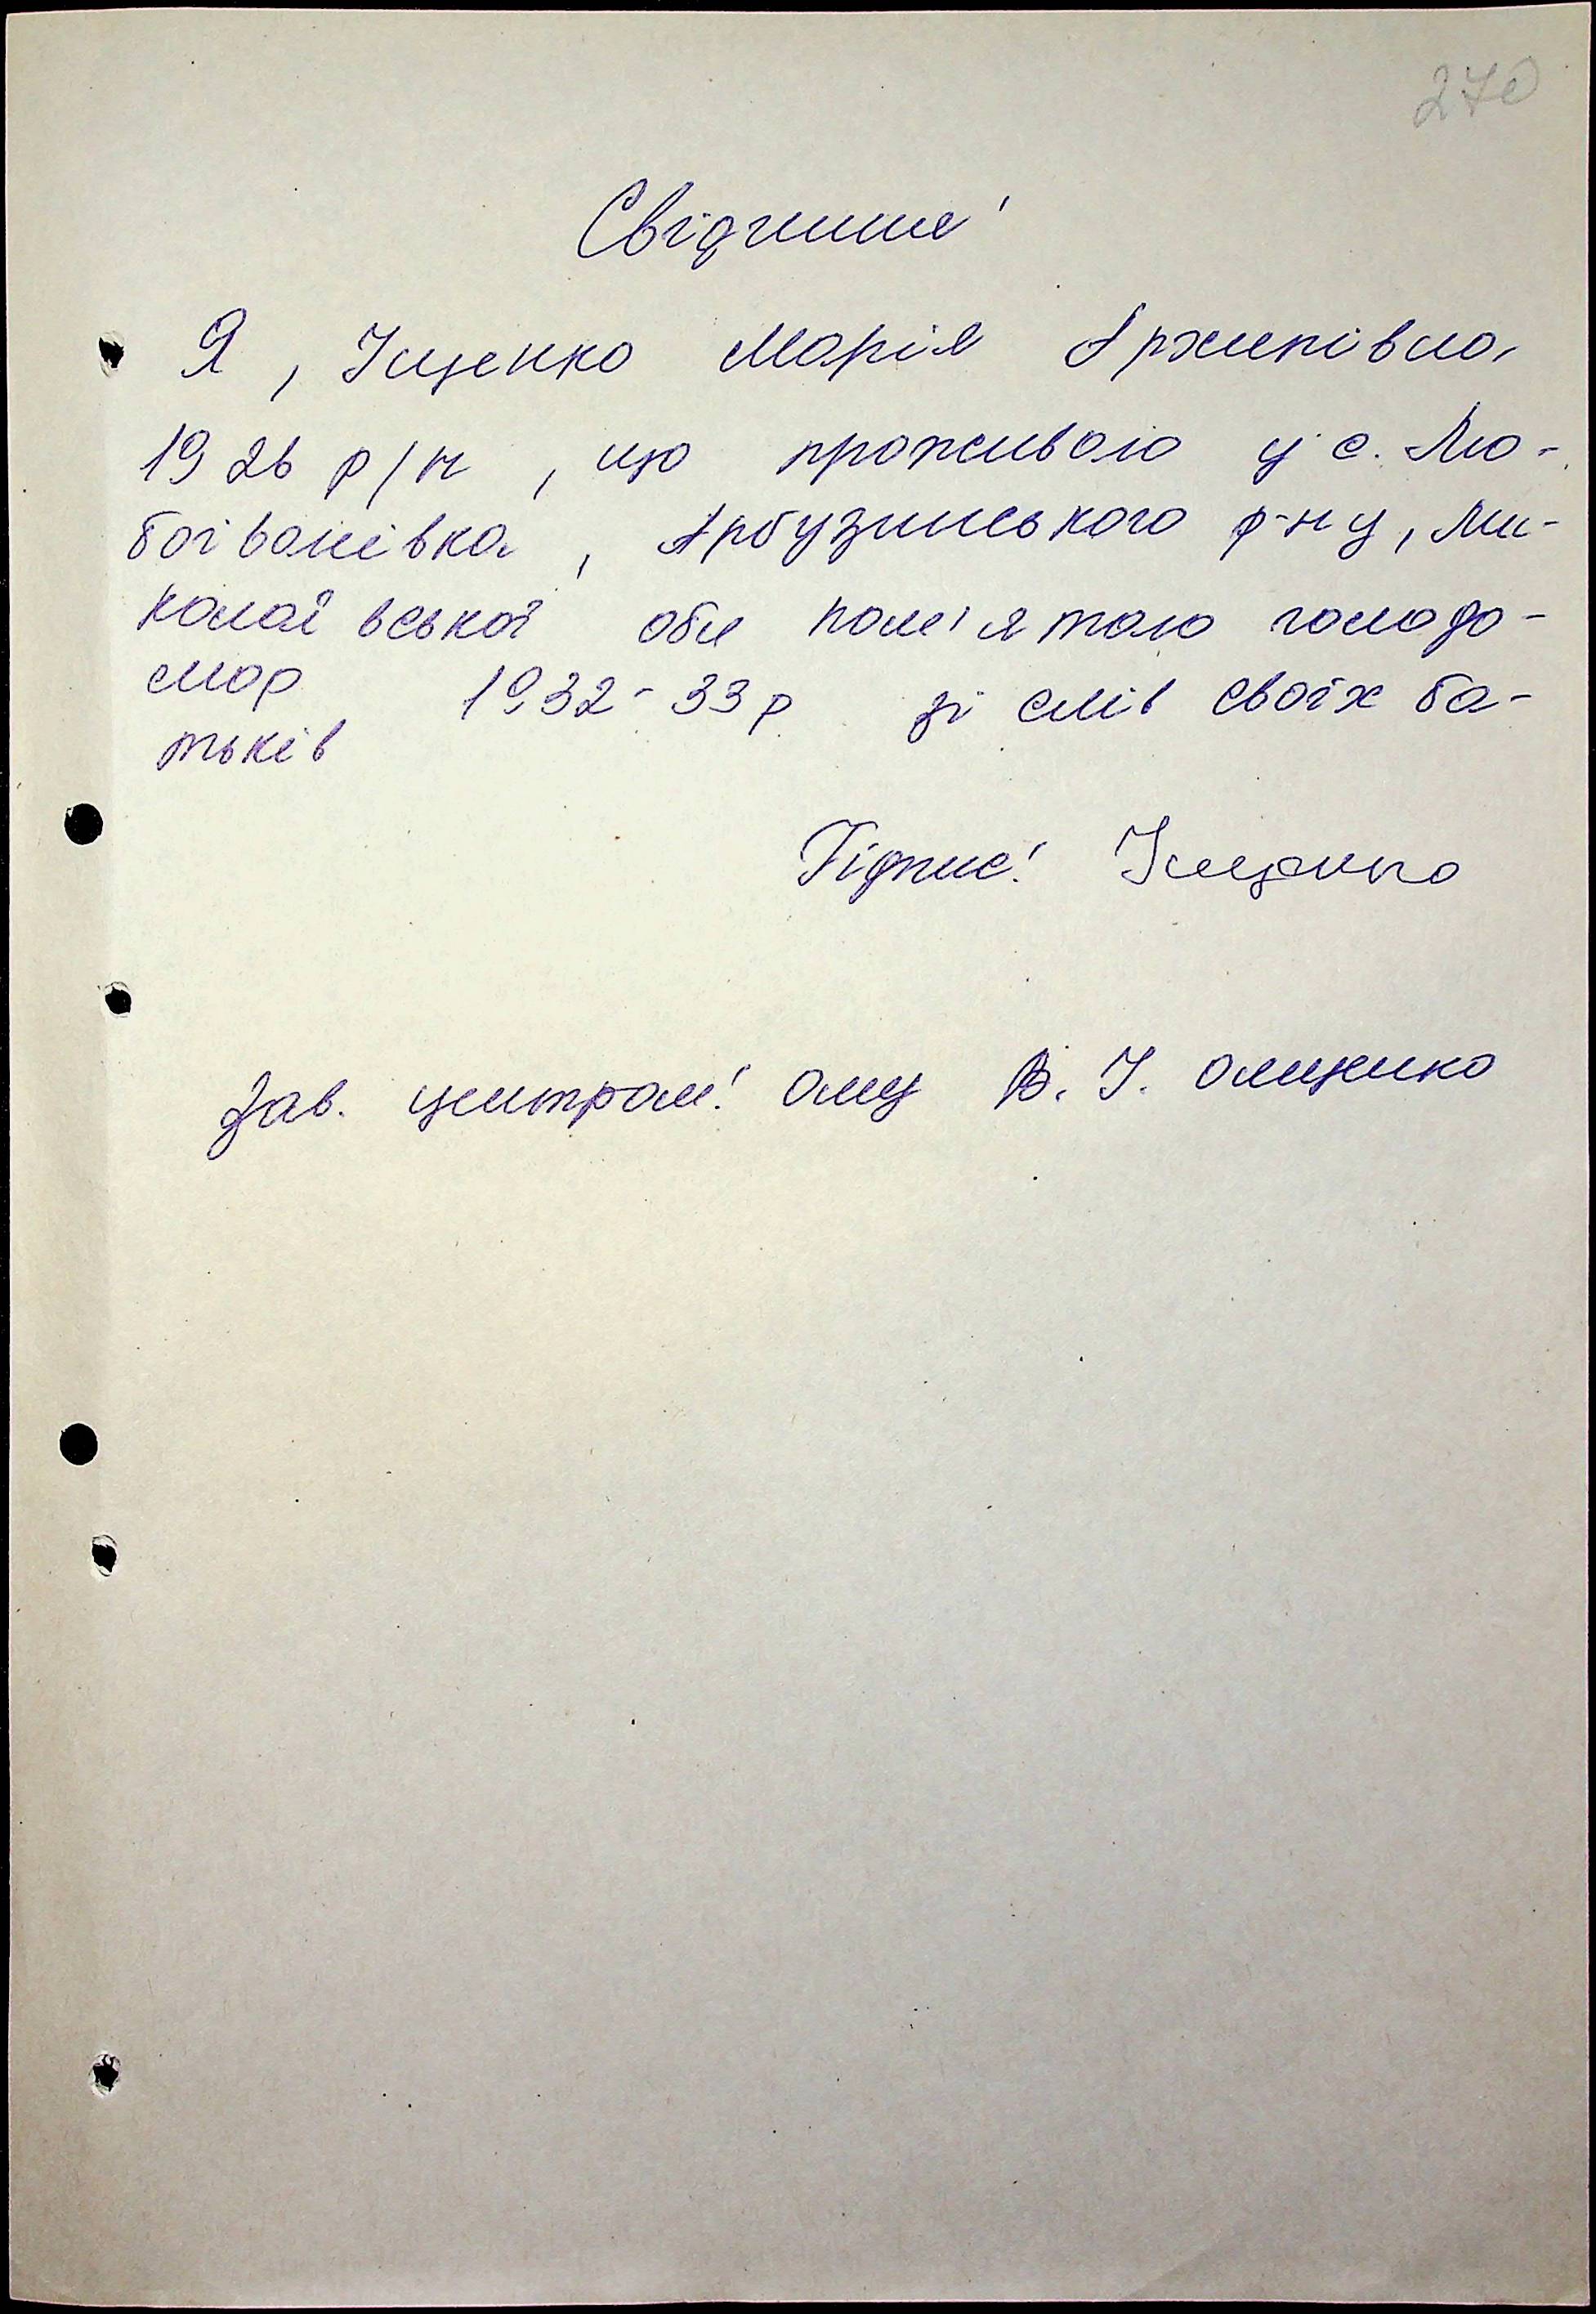 270
Свідчення!
Я, Іщенко Марія Архипівна,
1926 р/н, що проживаю у с. Лю-
боіванівка, Арбузинського р-ну, Ми-
колаївської обл пам'ятаю голодо-
мор 1932-33р зі слів своїх ба-
тьків
Підпис: Іщенко
Зав. центром: В. І. Оліценко